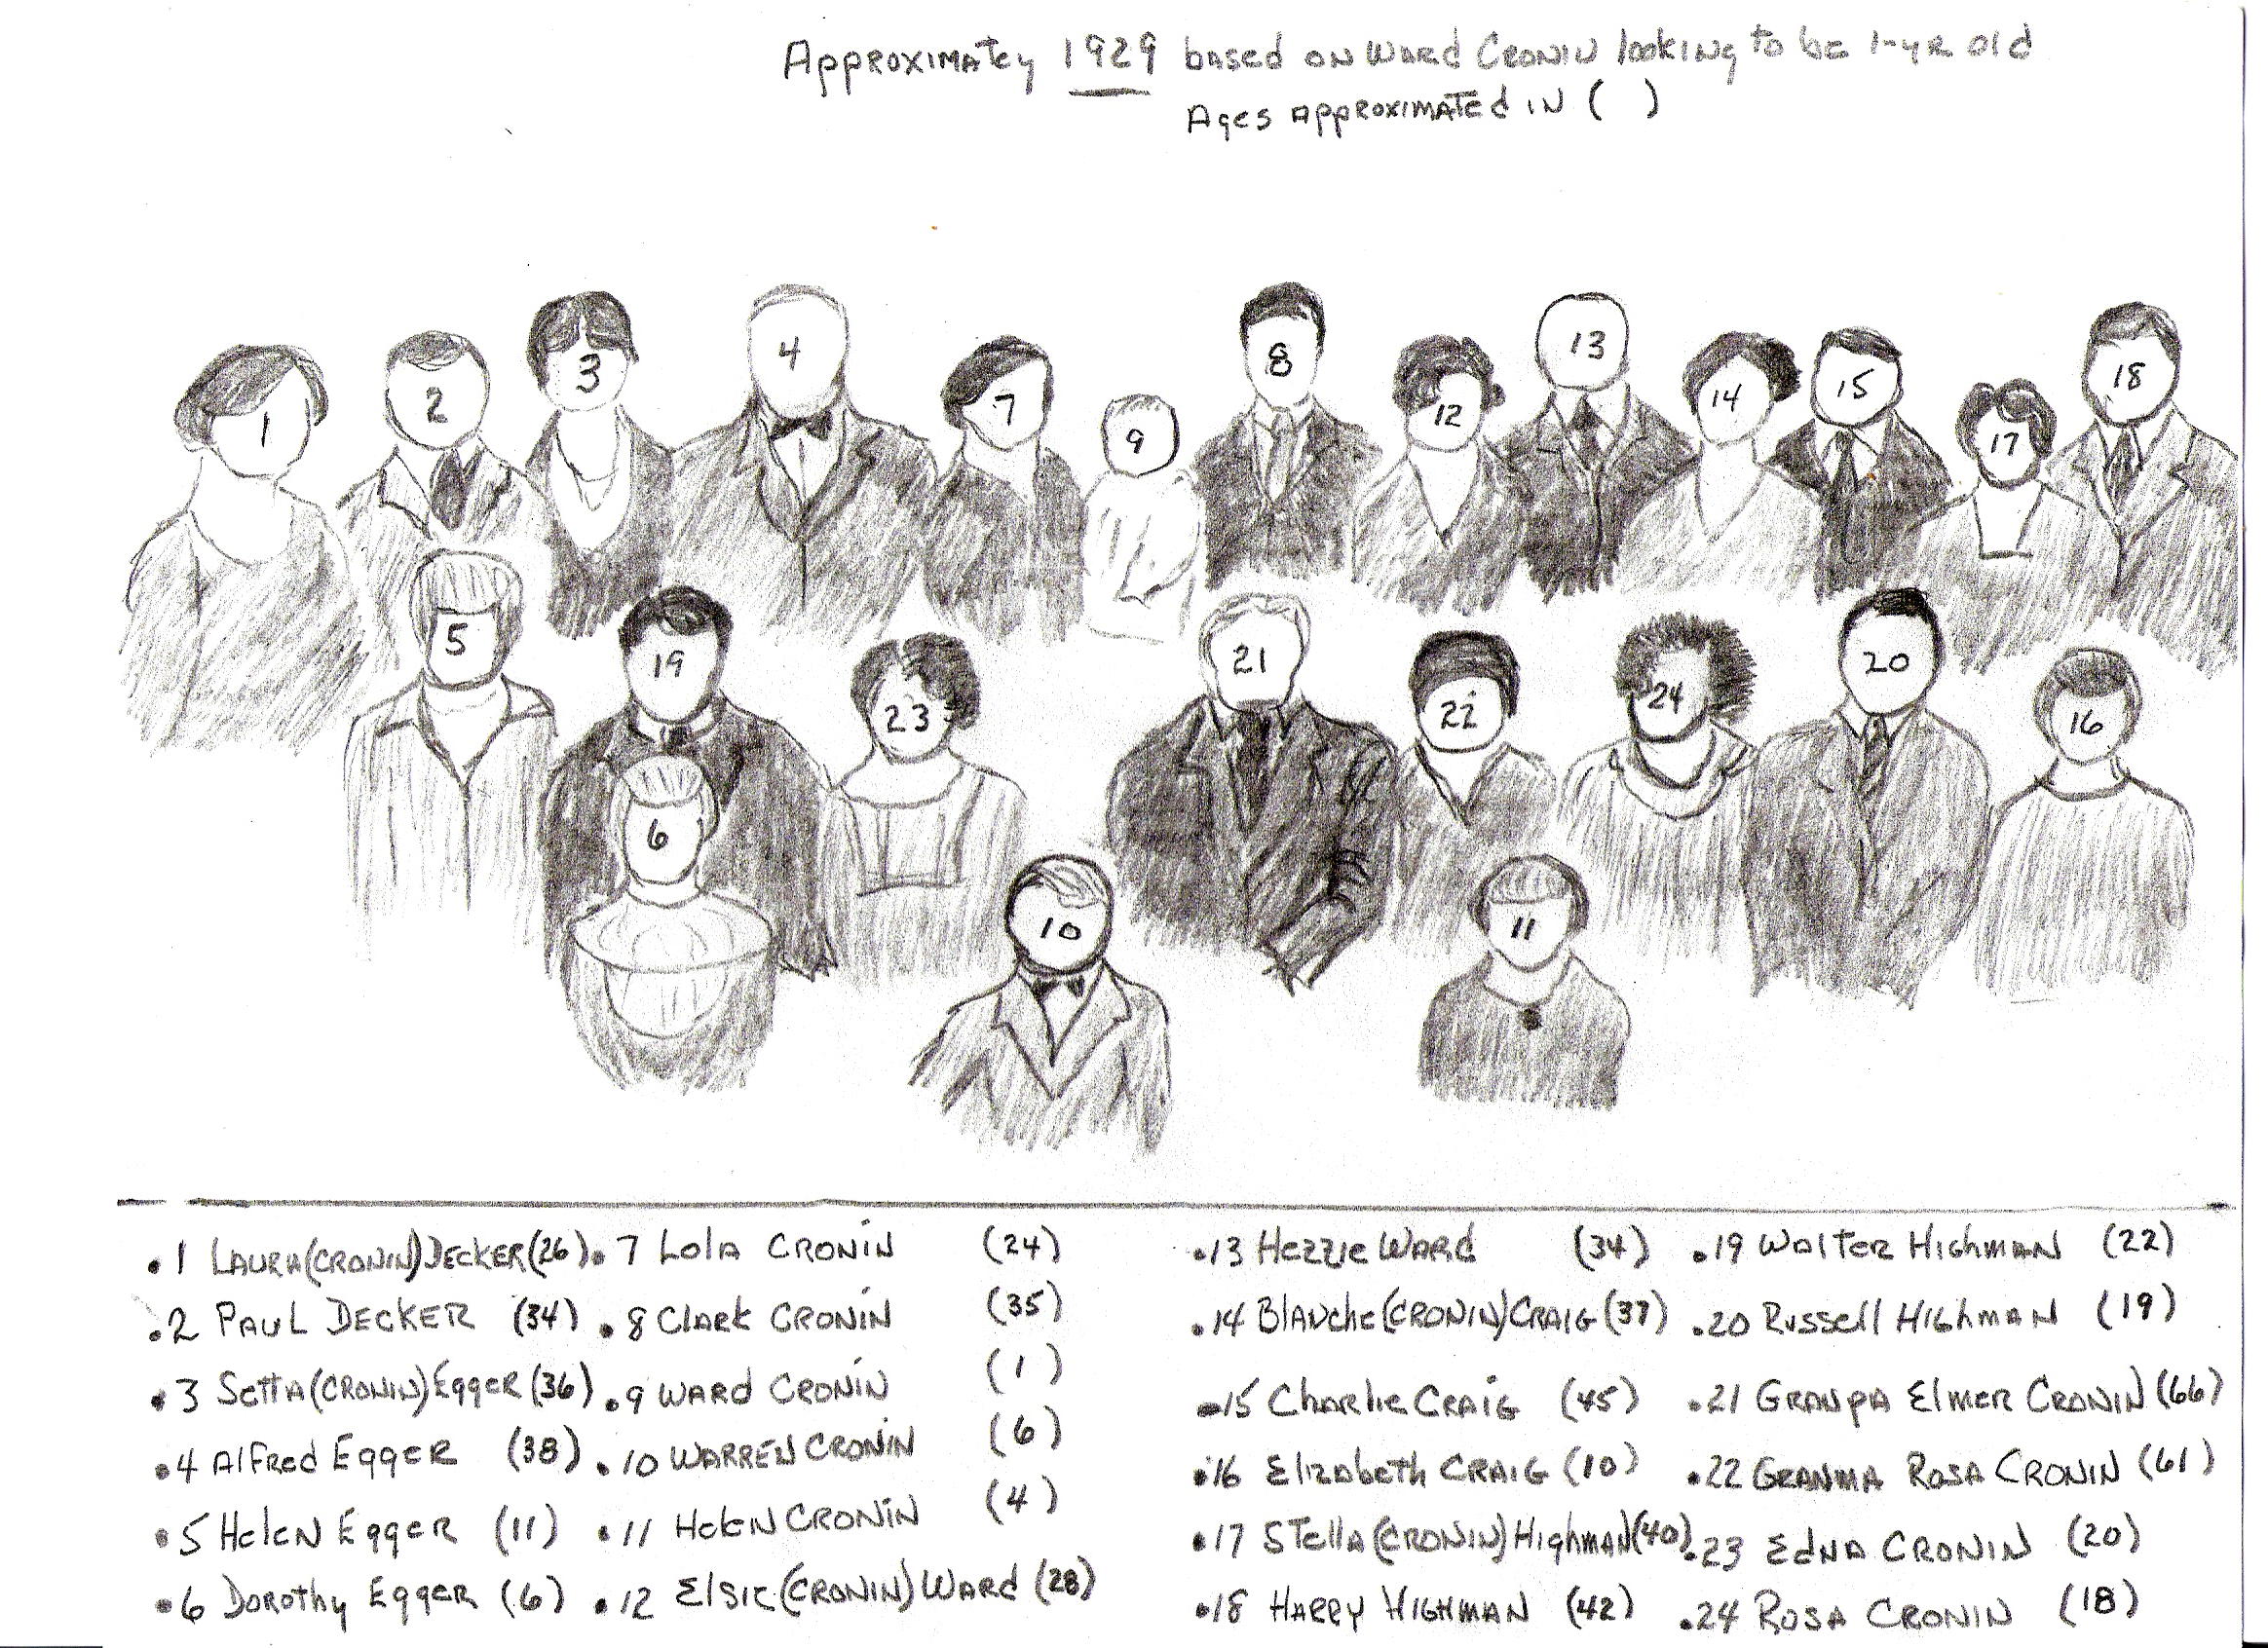 Approximatey 1929 based on Ward Cronin looking to be 1-yr old
Ages approximated in ( )
1
2
3
4
7
9
8
12
13
14
15
17
18
5
19
23
21
22
24
20
16
6
10
11
.1 Laura (Cronin) Decker (26)
.2 Paul Decker (34)
.3 Setta (Cronin) Egger (36)
.4 Alfred Egger (38)
.5 Helen Egger (11)
.6 Dorothy Egger (6)
.7 Lola Cronin (24)
.8 Clark Cronin (35)
.9 Ward Cronin (1)
.10 Warren Cronin (6)
.11 Helen Cronin (4)
.12 Elsie (Cronin) Ward (28)
.13 Hezzie Ward (34)
.14 Blanche (Cronin) Craig (37)
.15 Charlie Craig (45)
.16 Elizabeth Craig (10)
.17 Stella (Cronin) Highman (40)
.18 Harry Highman (42)
.19 Walter Highman (22)
.20 Russell Highman (19)
.21 Granpa Elmer Cronin (66)
.22 Granma Rosa Cronin (61)
.23 Edna Cronin (20)
.24 Rosa Cronin (18)